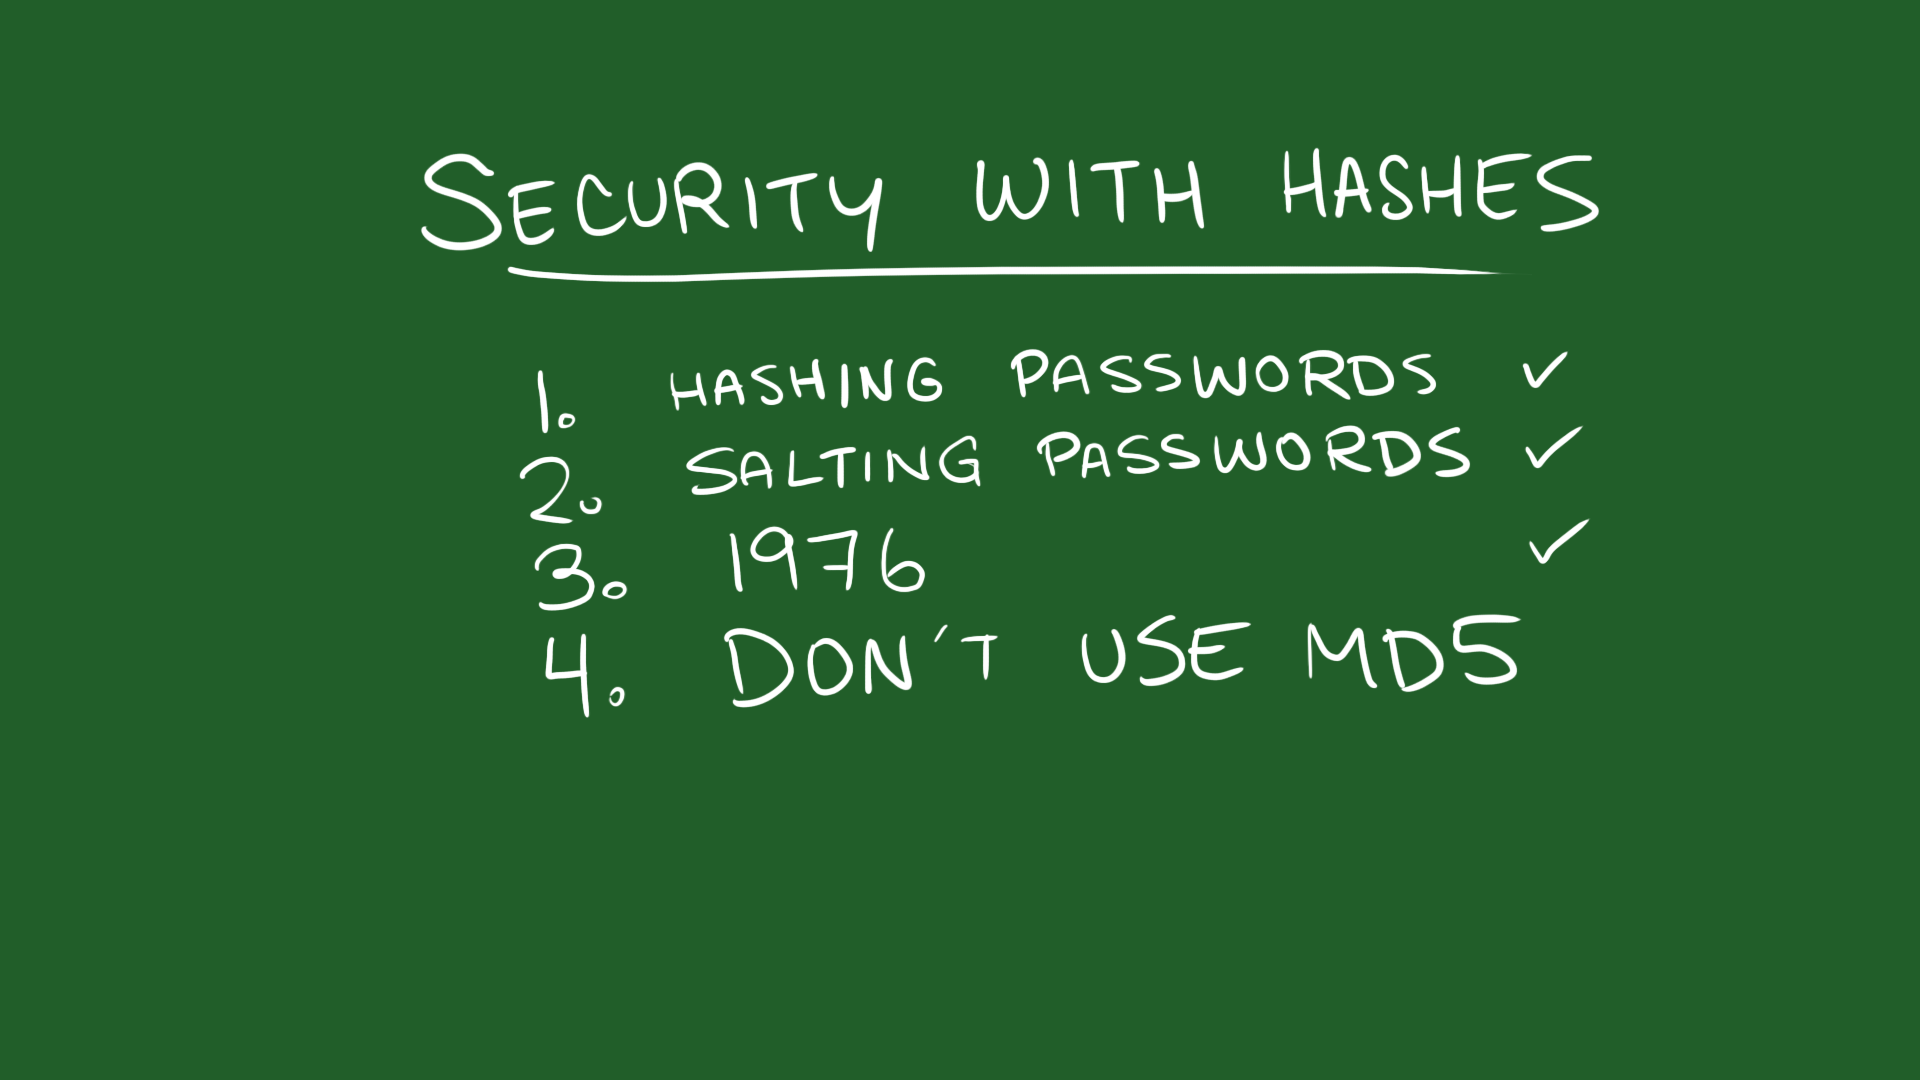 SECURITY WITH HASHES
1. HASHING PASSWORDS ✓
2. SALTING PASSWORDS ✓
3. 1976 ✓
4. DON'T USE MD5